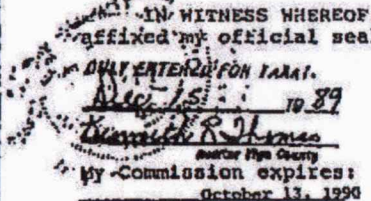 IN WITNESS WHEREOF
affixed my official seal
DULY ENTERED FOR TAXAT.
Dec. 15 19 89
Kenneth R. Thomas
Auditor County
My Commission expires:
October 13, 1990